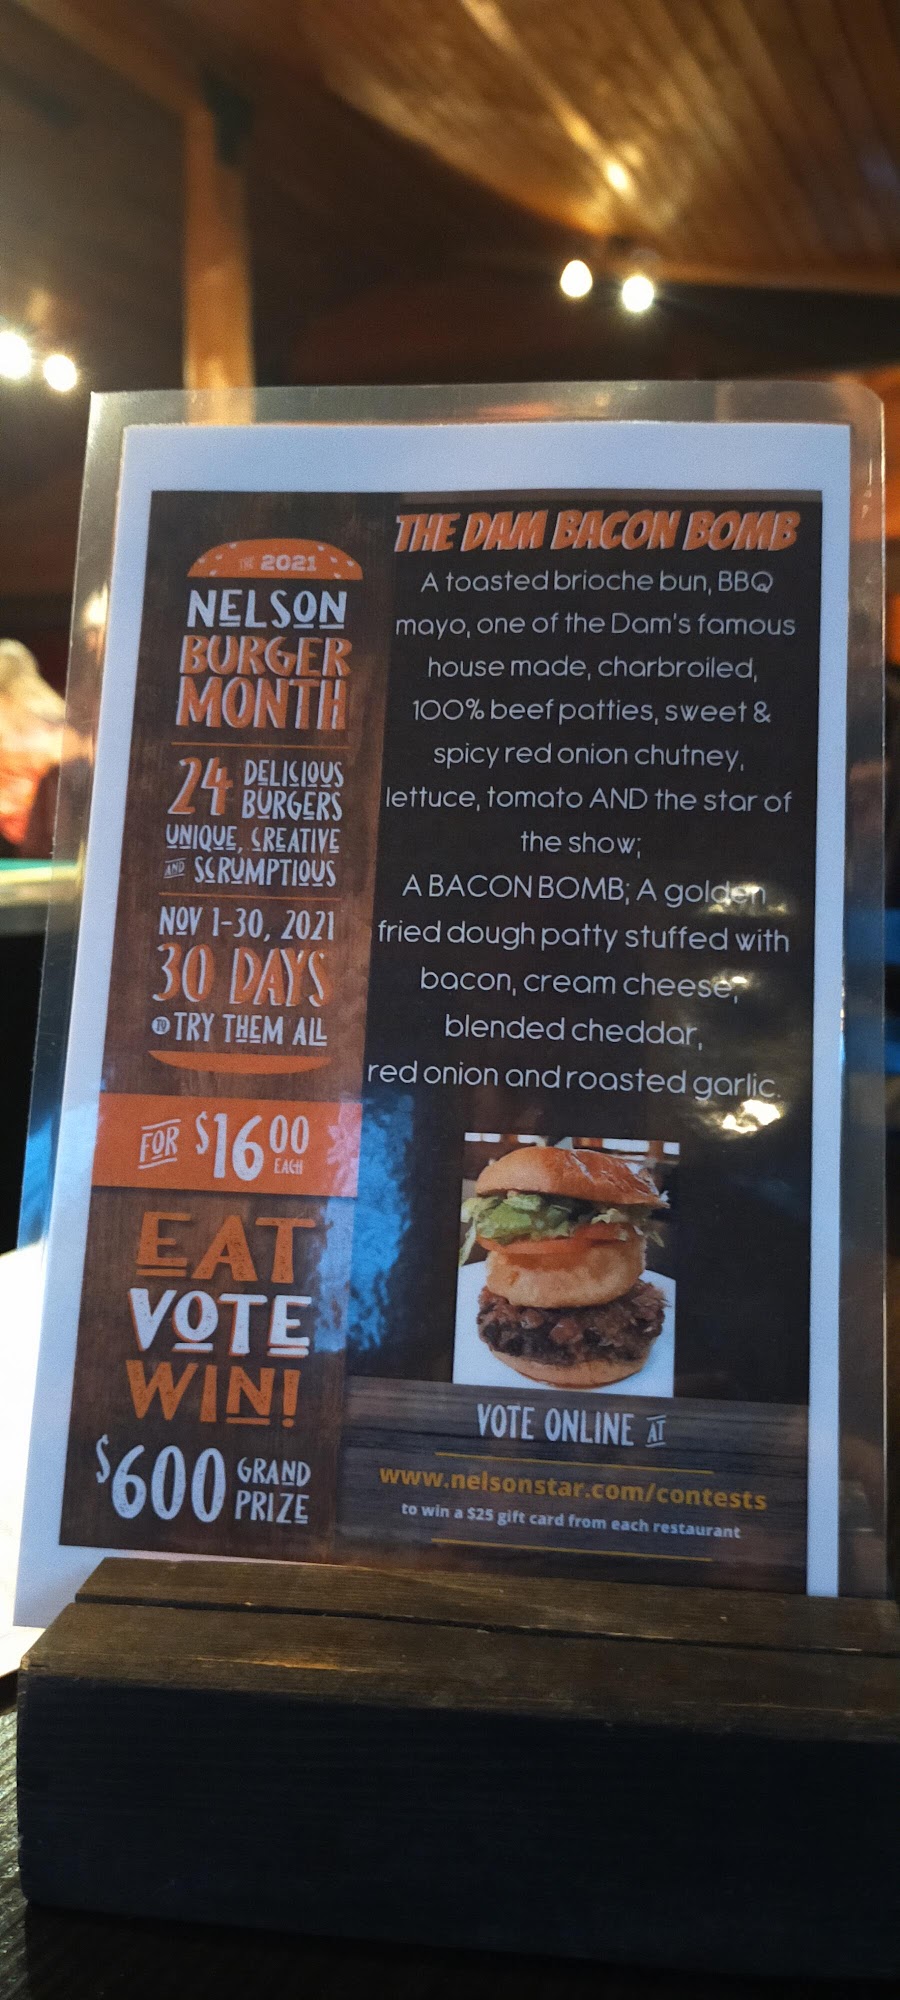 THE 2021
NELSON
BURGER
MONTH
24 DELICIOUS
BURGERS
UNIQUE, CREATIVE
AND SCRUMPTIOUS
NOV 1-30, 2021
30 DAYS
TO TRY THEM ALL
FOR $16.00
EACH
EAT
VOTE
WIN!
$600 GRAND
PRIZE
THE DAM BACON BOMB
A toasted brioche bun, BBQ
mayo, one of the Dam's famous
house made, charbroiled,
100% beef patties, sweet &
spicy red onion chutney,
lettuce, tomato AND the star of
the show;
A BACON BOMB; A golden
fried dough patty stuffed with
bacon, cream cheese,
blended cheddar,
red onion and roasted garlic.
VOTE ONLINE AT
www.nelsonstar.com/contests
to win a $25 gift card from each restaurant